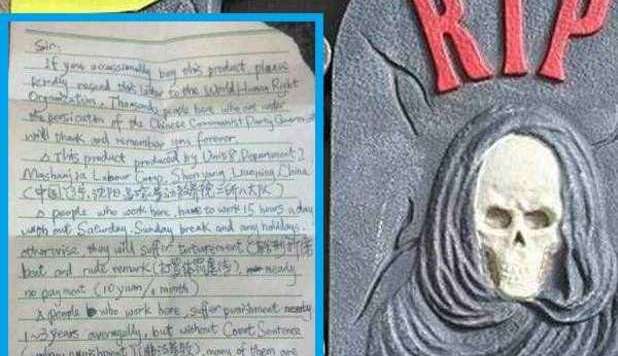 Sir:
If you occassionally buy this product, please
kindly resend this letter to the World Human Right
Organization. Thousands people here who are under
the persicution of the Chinese Communist Party Government
will thank and remember you forever.
△ This product produced by Unit 8, Department 2
Mashanjia Labour Camp, Shenyang, Liaoning, China.
(中国,辽宁,沈阳,马三家劳动教养院二所八大队)
△ people who work here, have to work 15 hours a day
with out Saturday, Sunday break and any holidays,
otherwise, they will suffer torturement (酷刑折磨)
beat and rude remark (打骂体罚虐待) nearly
no payment (10 yuan/1 month)
△ people who work here, suffer punishment nearly
1~3 years averagelly, but without Court Sentence
punishment) (非法劳教), many of them are
RIP